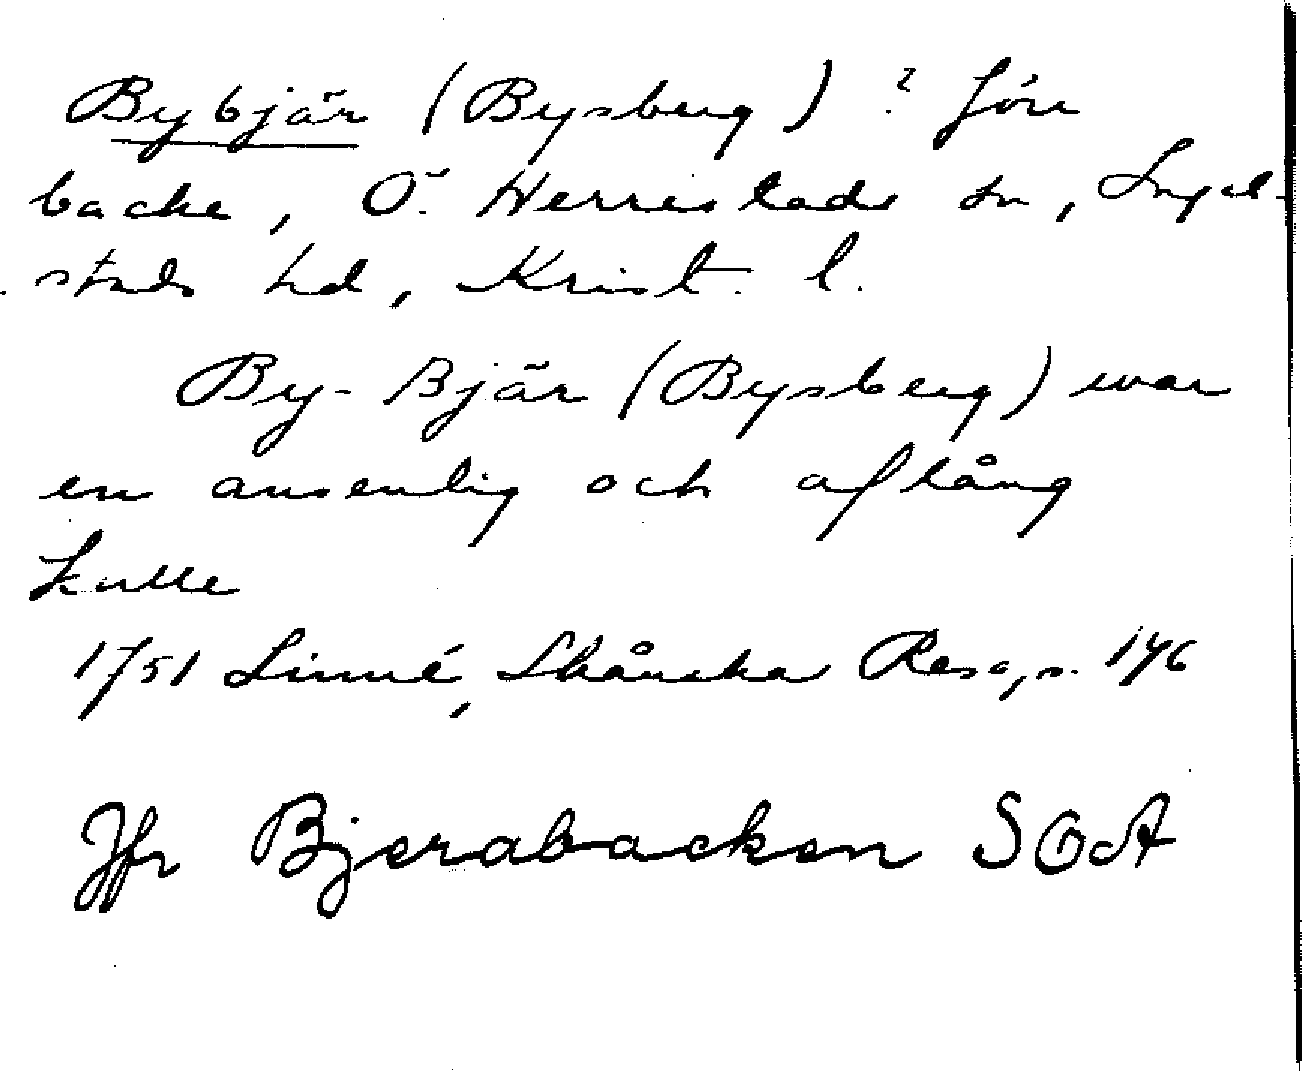 Bybjär (Bysberg) ? förr
backe, Ö. Herrestads sn, Ingel-
stads hd, Krist. l.
By-Bjär (Bysberg) war
en ansenlig och aflång
kulle
1751 Linné, Skånska Resa, s. 146
Jfr Bjerabacken SOA